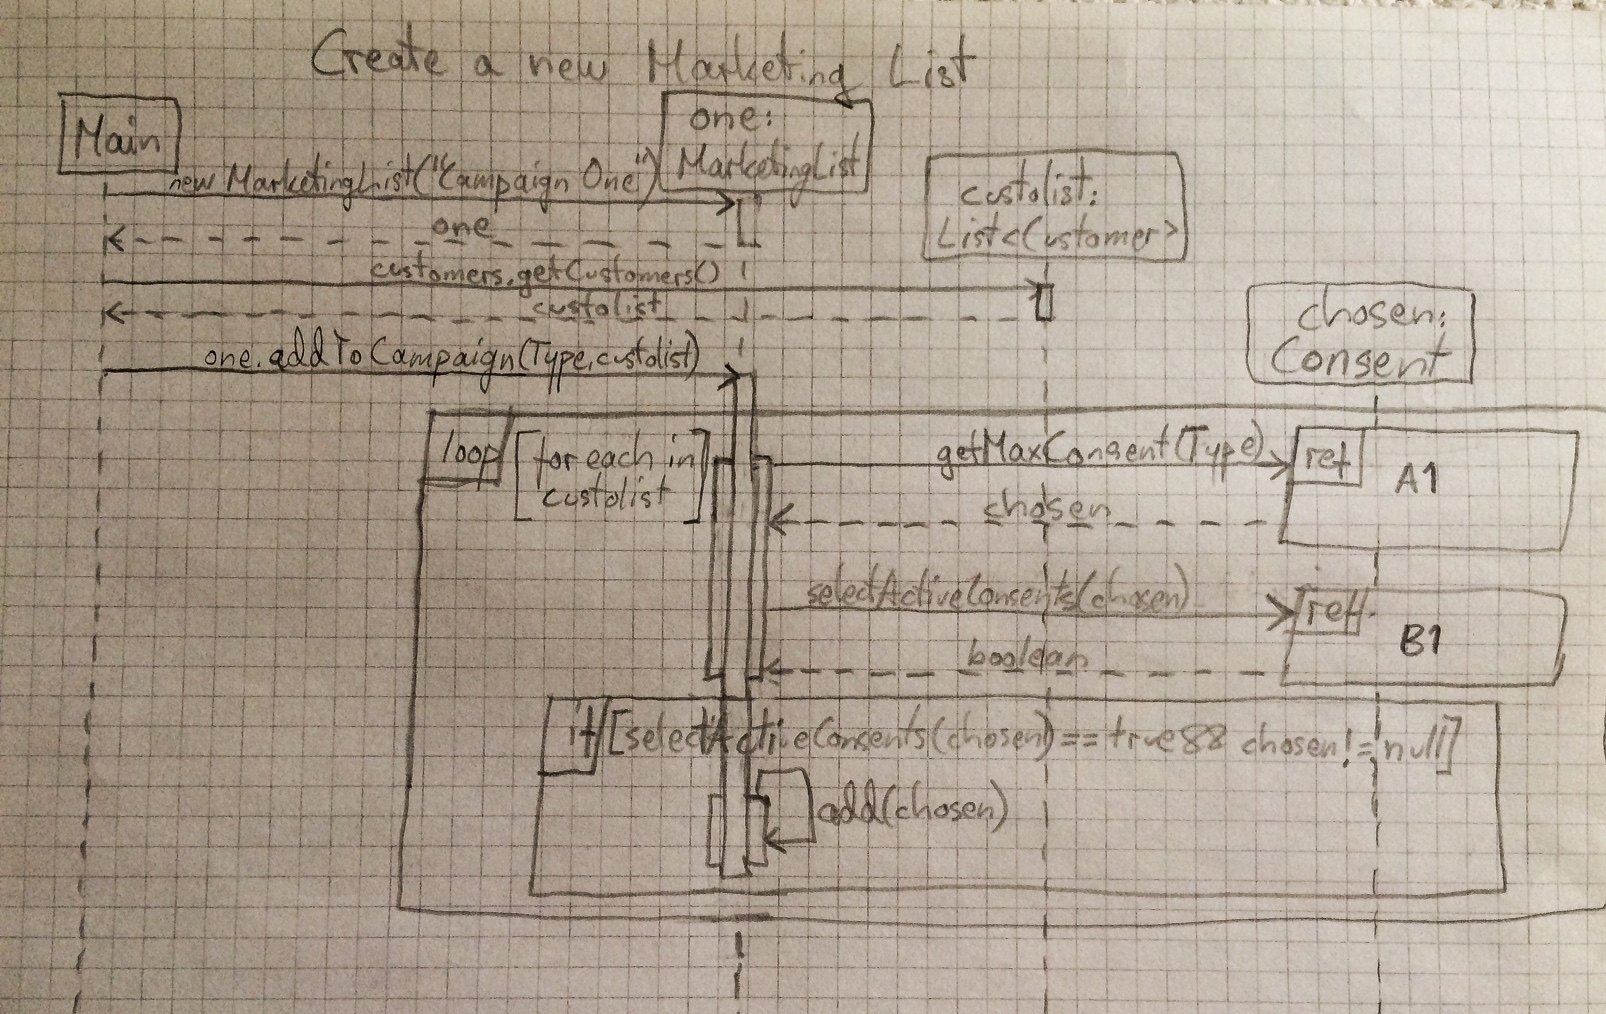 Create a new Marketing List
Main
one:
MarketingList
new MarketingList("Campaign One")
custolist:
List<Customer>
one
customers.getCustomers()
custolist
chosen:
Consent
one.addToCampaign(Type,custolist)
loop
[for each in
custolist]
getMaxConsent(Type)
ref
A1
chosen
selectActiveConsents(chosen)
ref
B1
boolean
if [selectActiveConsents(chosen)==true&& chosen!=null]
add(chosen)